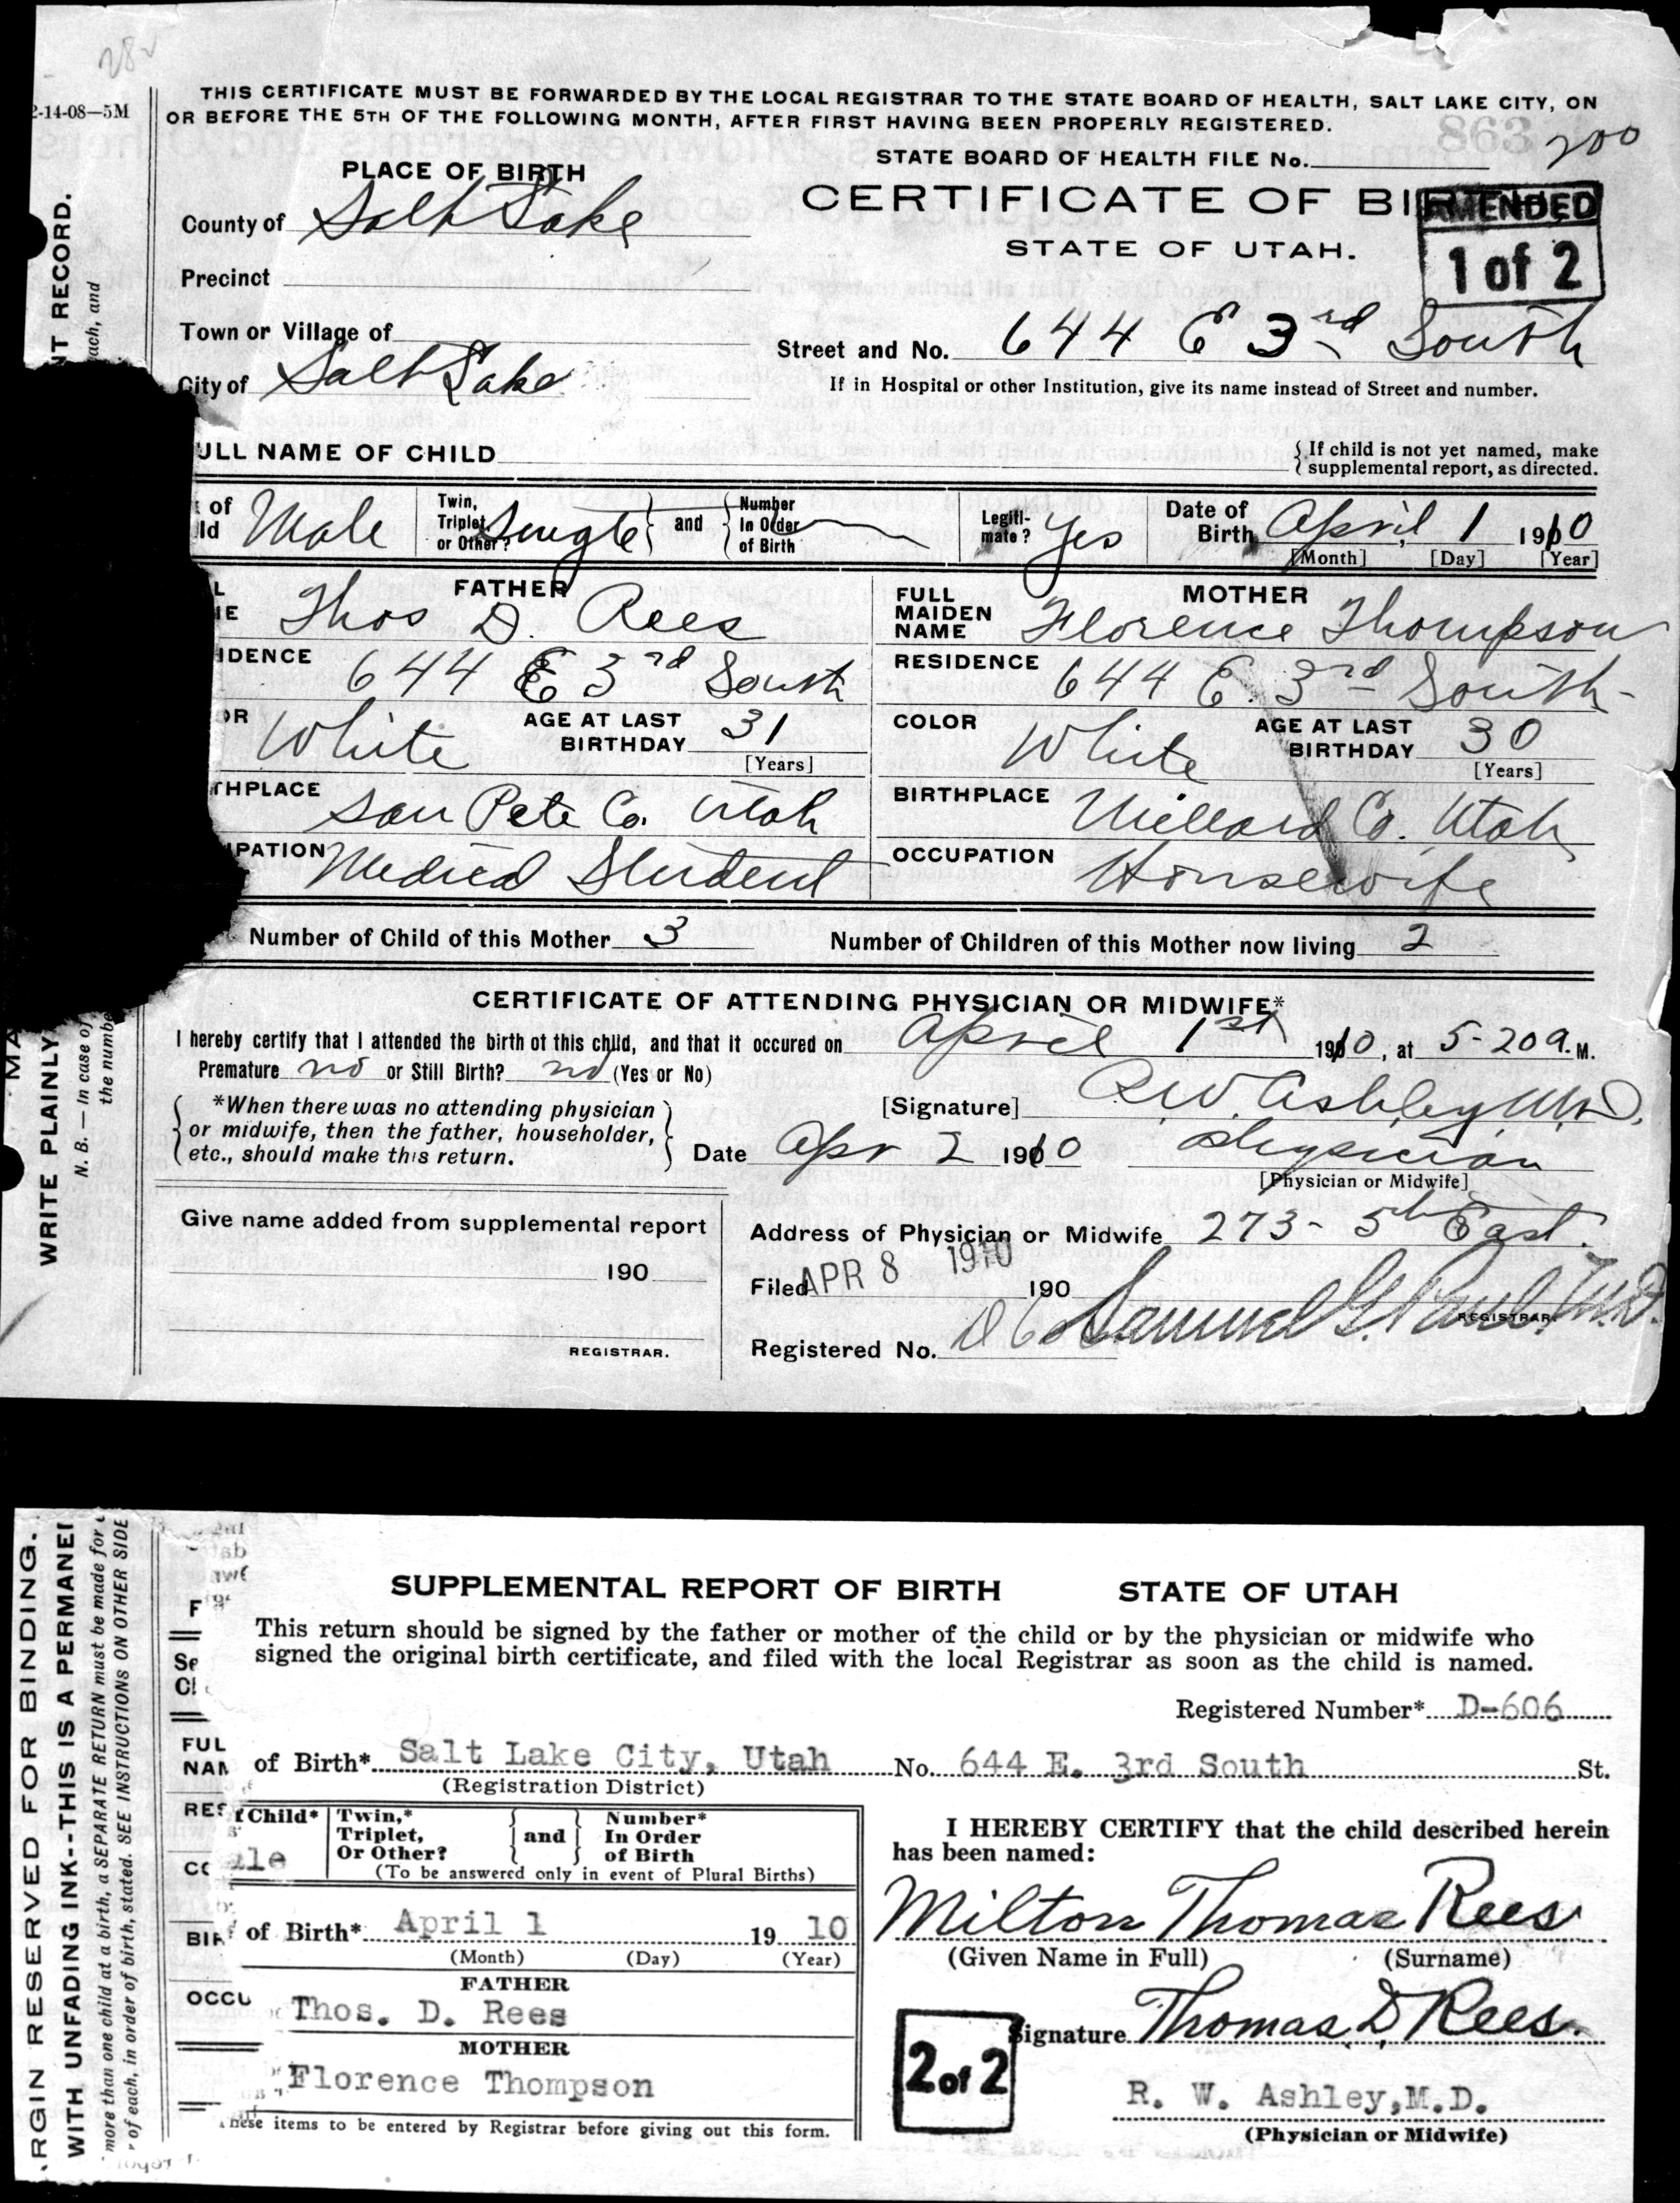 28
2-14-08—5M
THIS CERTIFICATE MUST BE FORWARDED BY THE LOCAL REGISTRAR TO THE STATE BOARD OF HEALTH, SALT LAKE CITY, ON
OR BEFORE THE 5TH OF THE FOLLOWING MONTH, AFTER FIRST HAVING BEEN PROPERLY REGISTERED.
863
STATE BOARD OF HEALTH FILE No. 200
PLACE OF BIRTH
CERTIFICATE OF BIRTH
AMENDED
1 of 2
STATE OF UTAH.
County of Salt Lake
Precinct
Town or Village of
Street and No. 644 E 3rd South
City of Salt Lake
If in Hospital or other Institution, give its name instead of Street and number.
ULL NAME OF CHILD
{If child is not yet named, make
supplemental report, as directed.
of
ld Male
Twin,
Triplet,
or Other? Single } and { Number
In Order
of Birth
Legiti-
mate? Yes
Date of
Birth April 1 1910
[Month] [Day] [Year]
FATHER
Thos D. Rees
FULL
MAIDEN
NAME
MOTHER
Florence Thompson
IDENCE 644 E 3rd South
RESIDENCE 644 E. 3rd South
OR White AGE AT LAST
BIRTHDAY 31
[Years]
COLOR White AGE AT LAST
BIRTHDAY 30
[Years]
THPLACE San Pete Co. Utah
BIRTHPLACE Millard Co. Utah
PATION Medical Student
OCCUPATION Housewife
Number of Child of this Mother 3
Number of Children of this Mother now living 2
CERTIFICATE OF ATTENDING PHYSICIAN OR MIDWIFE*
I hereby certify that I attended the birth of this child, and that it occured on April 1st 1910, at 5-20 a. M.
Premature no or Still Birth? no (Yes or No)
*When there was no attending physician
or midwife, then the father, householder,
etc., should make this return.
[Signature] R.W. Ashley M.D.
Date Apr 2 1910 Physician
[Physician or Midwife]
Give name added from supplemental report
190
REGISTRAR.
Address of Physician or Midwife 273- 5th East.
Filed APR 8 1910 190
Samuel G. Paul, M.D.
REGISTRAR.
Registered No. D 606
NT RECORD.
each, and
MA
WRITE PLAINLY
N. B. — In case of
the numbe
SUPPLEMENTAL REPORT OF BIRTH STATE OF UTAH
This return should be signed by the father or mother of the child or by the physician or midwife who
signed the original birth certificate, and filed with the local Registrar as soon as the child is named.
Registered Number* D-606
of Birth* Salt Lake City, Utah No. 644 E. 3rd South St.
(Registration District)
f Child*
ale
Twin,*
Triplet,
Or Other? } and { Number*
In Order
of Birth
(To be answered only in event of Plural Births)
of Birth* April 1 19 10
(Month) (Day) (Year)
FATHER
Thos. D. Rees
MOTHER
Florence Thompson
These items to be entered by Registrar before giving out this form.
I HEREBY CERTIFY that the child described herein
has been named:
Milton Thomas Rees
(Given Name in Full) (Surname)
2 of 2
Signature Thomas D Rees.
R. W. Ashley, M.D.
(Physician or Midwife)
F
Se
Cl
FUL
NAM
RES
CO
BIR
OCCU
RGIN RESERVED FOR BINDING.
WITH UNFADING INK--THIS IS A PERMANE
more than one child at a birth, a SEPARATE RETURN must be made for
of each, in order of birth, stated. SEE INSTRUCTIONS ON OTHER SIDE